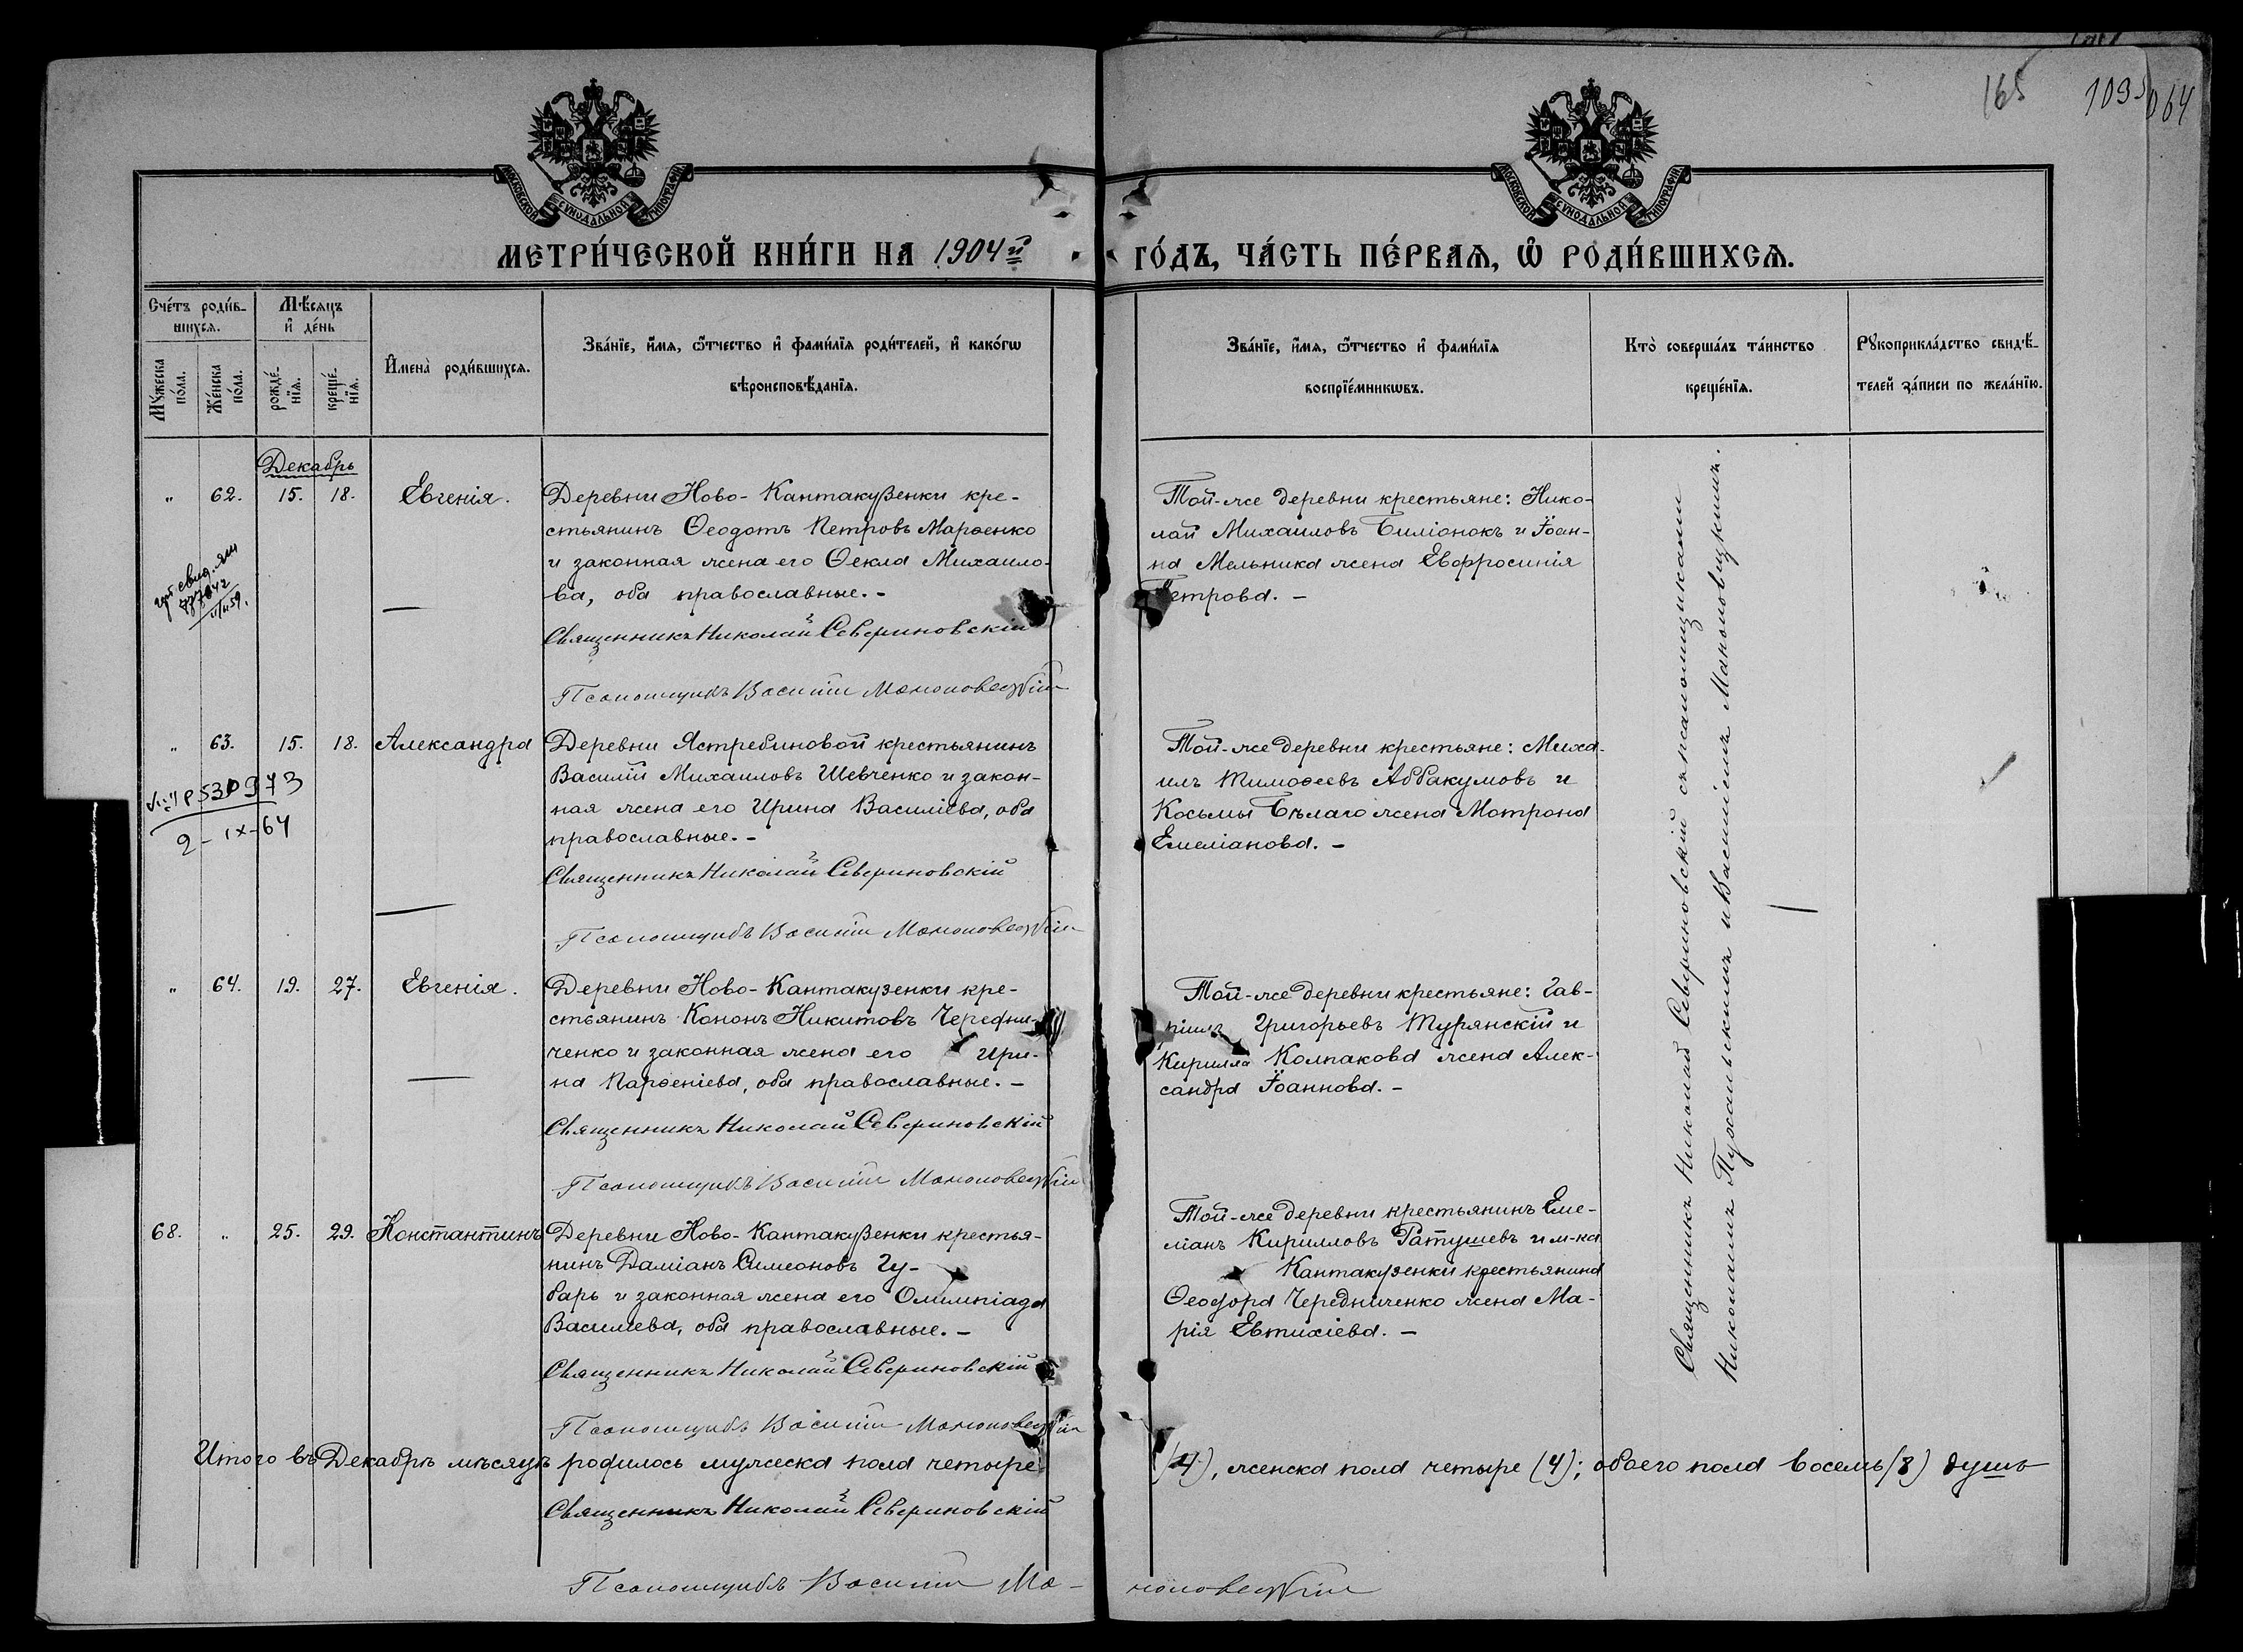 165
1095
064
МОСКОВСКОЙ СѴНОДАЛЬНОЙ ТИПОГРАФІИ
МОСКОВСКОЙ СѴНОДАЛЬНОЙ ТИПОГРАФІИ
МЕТРИ́ЧЕСКОЙ КНИ́ГИ НА 1904й
ГО́ДЪ, ЧА́СТЬ ПЕ́РВАѦ, Ѡ҆ РОДИ́ВШИХСѦ.
Сче́тъ роди́в-
шихсѧ.
Мѣ́сѧцъ
и҆ де́нь
Мꙋ́жеска
по́ла.
Же́нска
по́ла.
рожде́-
нїѧ.
креще́-
нїѧ.
И҆мена̀ роди́вшихсѧ.
Зва́нїе, и҆́мѧ, ѻ҆́тчество и҆ фами́лїѧ роди́телей, и҆ како́гѡ
вѣроисповѣ́данїѧ.
Зва́нїе, и҆́мѧ, ѻ҆́тчество и҆ фами́лїѧ
воспрїе́мникѡвъ.
Кто̀ соверша́лъ та́инство
креще́нїѧ.
Рꙋкоприкла́дство свидѣ́-
телей за́писи по жела́нїю.
Декабрь
" 62. 15. 18. Евгенія.
Деревни Ново-Кантакузенки кре-
стьянинъ Ѳеодотъ Петровъ Марѳенко
и законная жена его Ѳекла Михаило-
ва, оба православные. -
Священникъ Николай Севериновскій
Псаломщикъ Василій Маноповецкій
Той-же деревни крестьяне: Нико-
лай Михаиловъ Билiонокъ и Іоан-
на Мельника жена Евфросинія
Петрова. -
" 63. 15. 18. Александра
530973
2-IX-64
Деревни Ястребиновой крестьянинъ
Василій Михаиловъ Шевченко и закон-
ная жена его Ирина Василіева, оба
православные. -
Священникъ Николай Севериновскій
Псаломщикъ Василій Маноповецкій
Той-же деревни крестьяне: Миха-
илъ Тимоѳеевъ Аввакумовъ и
Косьмы Бѣлаго жена Матрона
Емеліанова. -
" 64. 19. 27. Евгенія.
Деревни Ново-Кантакузенки кре-
стьянинъ Кононъ Никитовъ Чередни-
ченко и законная жена его Ири-
на Парѳеніева, оба православные. -
Священникъ Николай Севериновскій
Псаломщикъ Василій Маноповецкій
Той-же деревни крестьяне: Гав-
ріилъ Григорьевъ Турянскій и
Кирилла Колпакова жена Алек-
сандра Іоаннова. -
68. " 25. 29. Константинъ
Деревни Ново-Кантакузенки крестья-
нинъ Даміанъ Симеоновъ Гу-
барь и законная жена его Олимпіада
Василіева, оба православные. -
Священникъ Николай Севериновскій
Псаломщикъ Василій Маноповецкій
Той-же деревни крестьянинъ Еме-
ліанъ Кирилловъ Ратушевъ и м-ка
Кантакузенки крестьянина
Ѳеодора Чередниченко жена Ма-
рія Евтихіева. -
Священникъ Николай Севериновскій съ псаломщиками
Никономъ и Василіемъ Маноповицкимъ.
Итого въ Декабрѣ мѣсяцѣ родилось мужеска пола четыре (4), женска пола четыре (4); обоего пола восемь (8) душъ
Священникъ Николай Севериновскій
Псаломщикъ Василій Маноповецкій